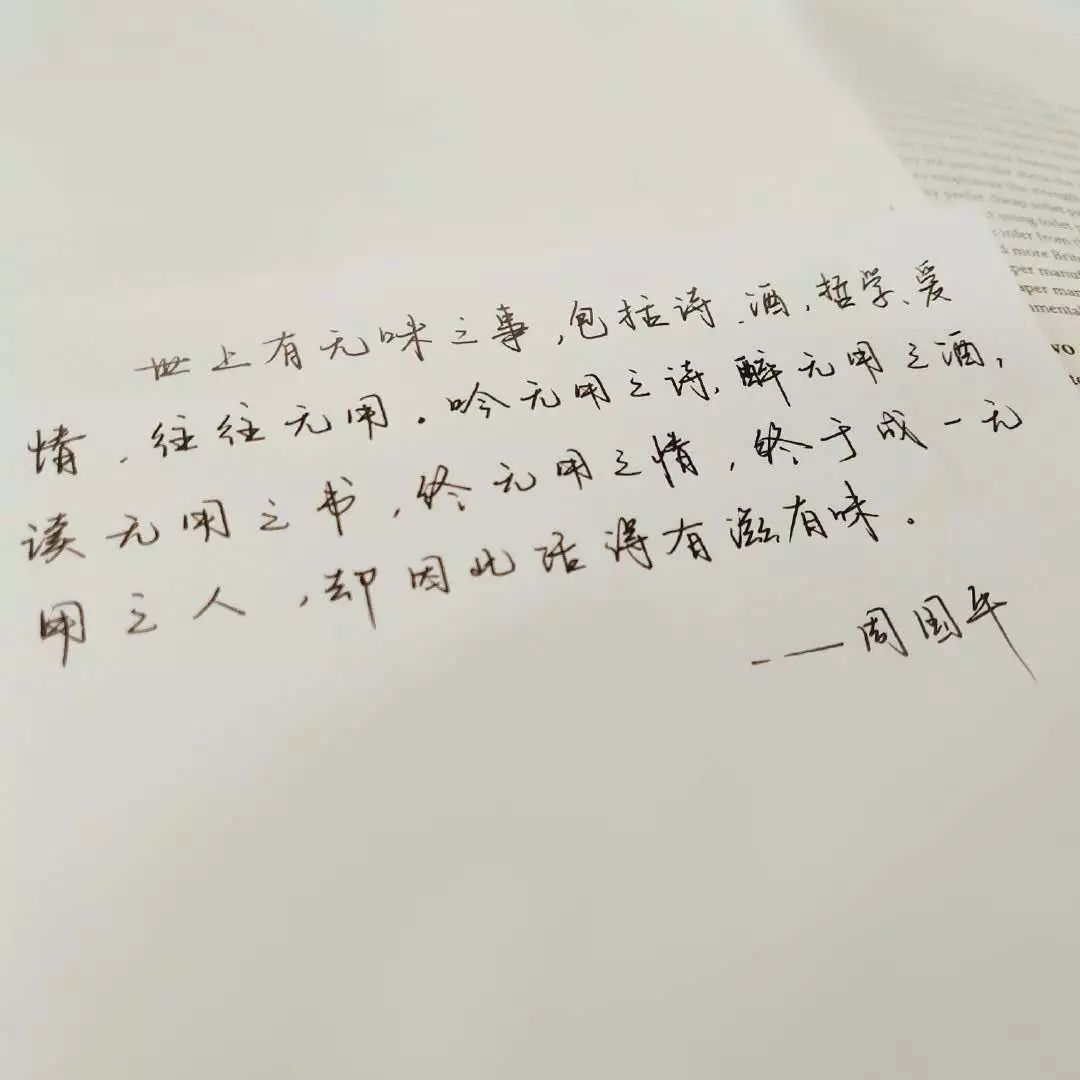 世上有无味之事,包括诗、酒,哲学、爱
情、往往无用。吟无用之诗,醉无用之酒,
读无用之书,终无用之情,终于成一无
用之人,却因此活得有滋有味。
——周国平
prefer cheap toilet
using toilet
infer from
more